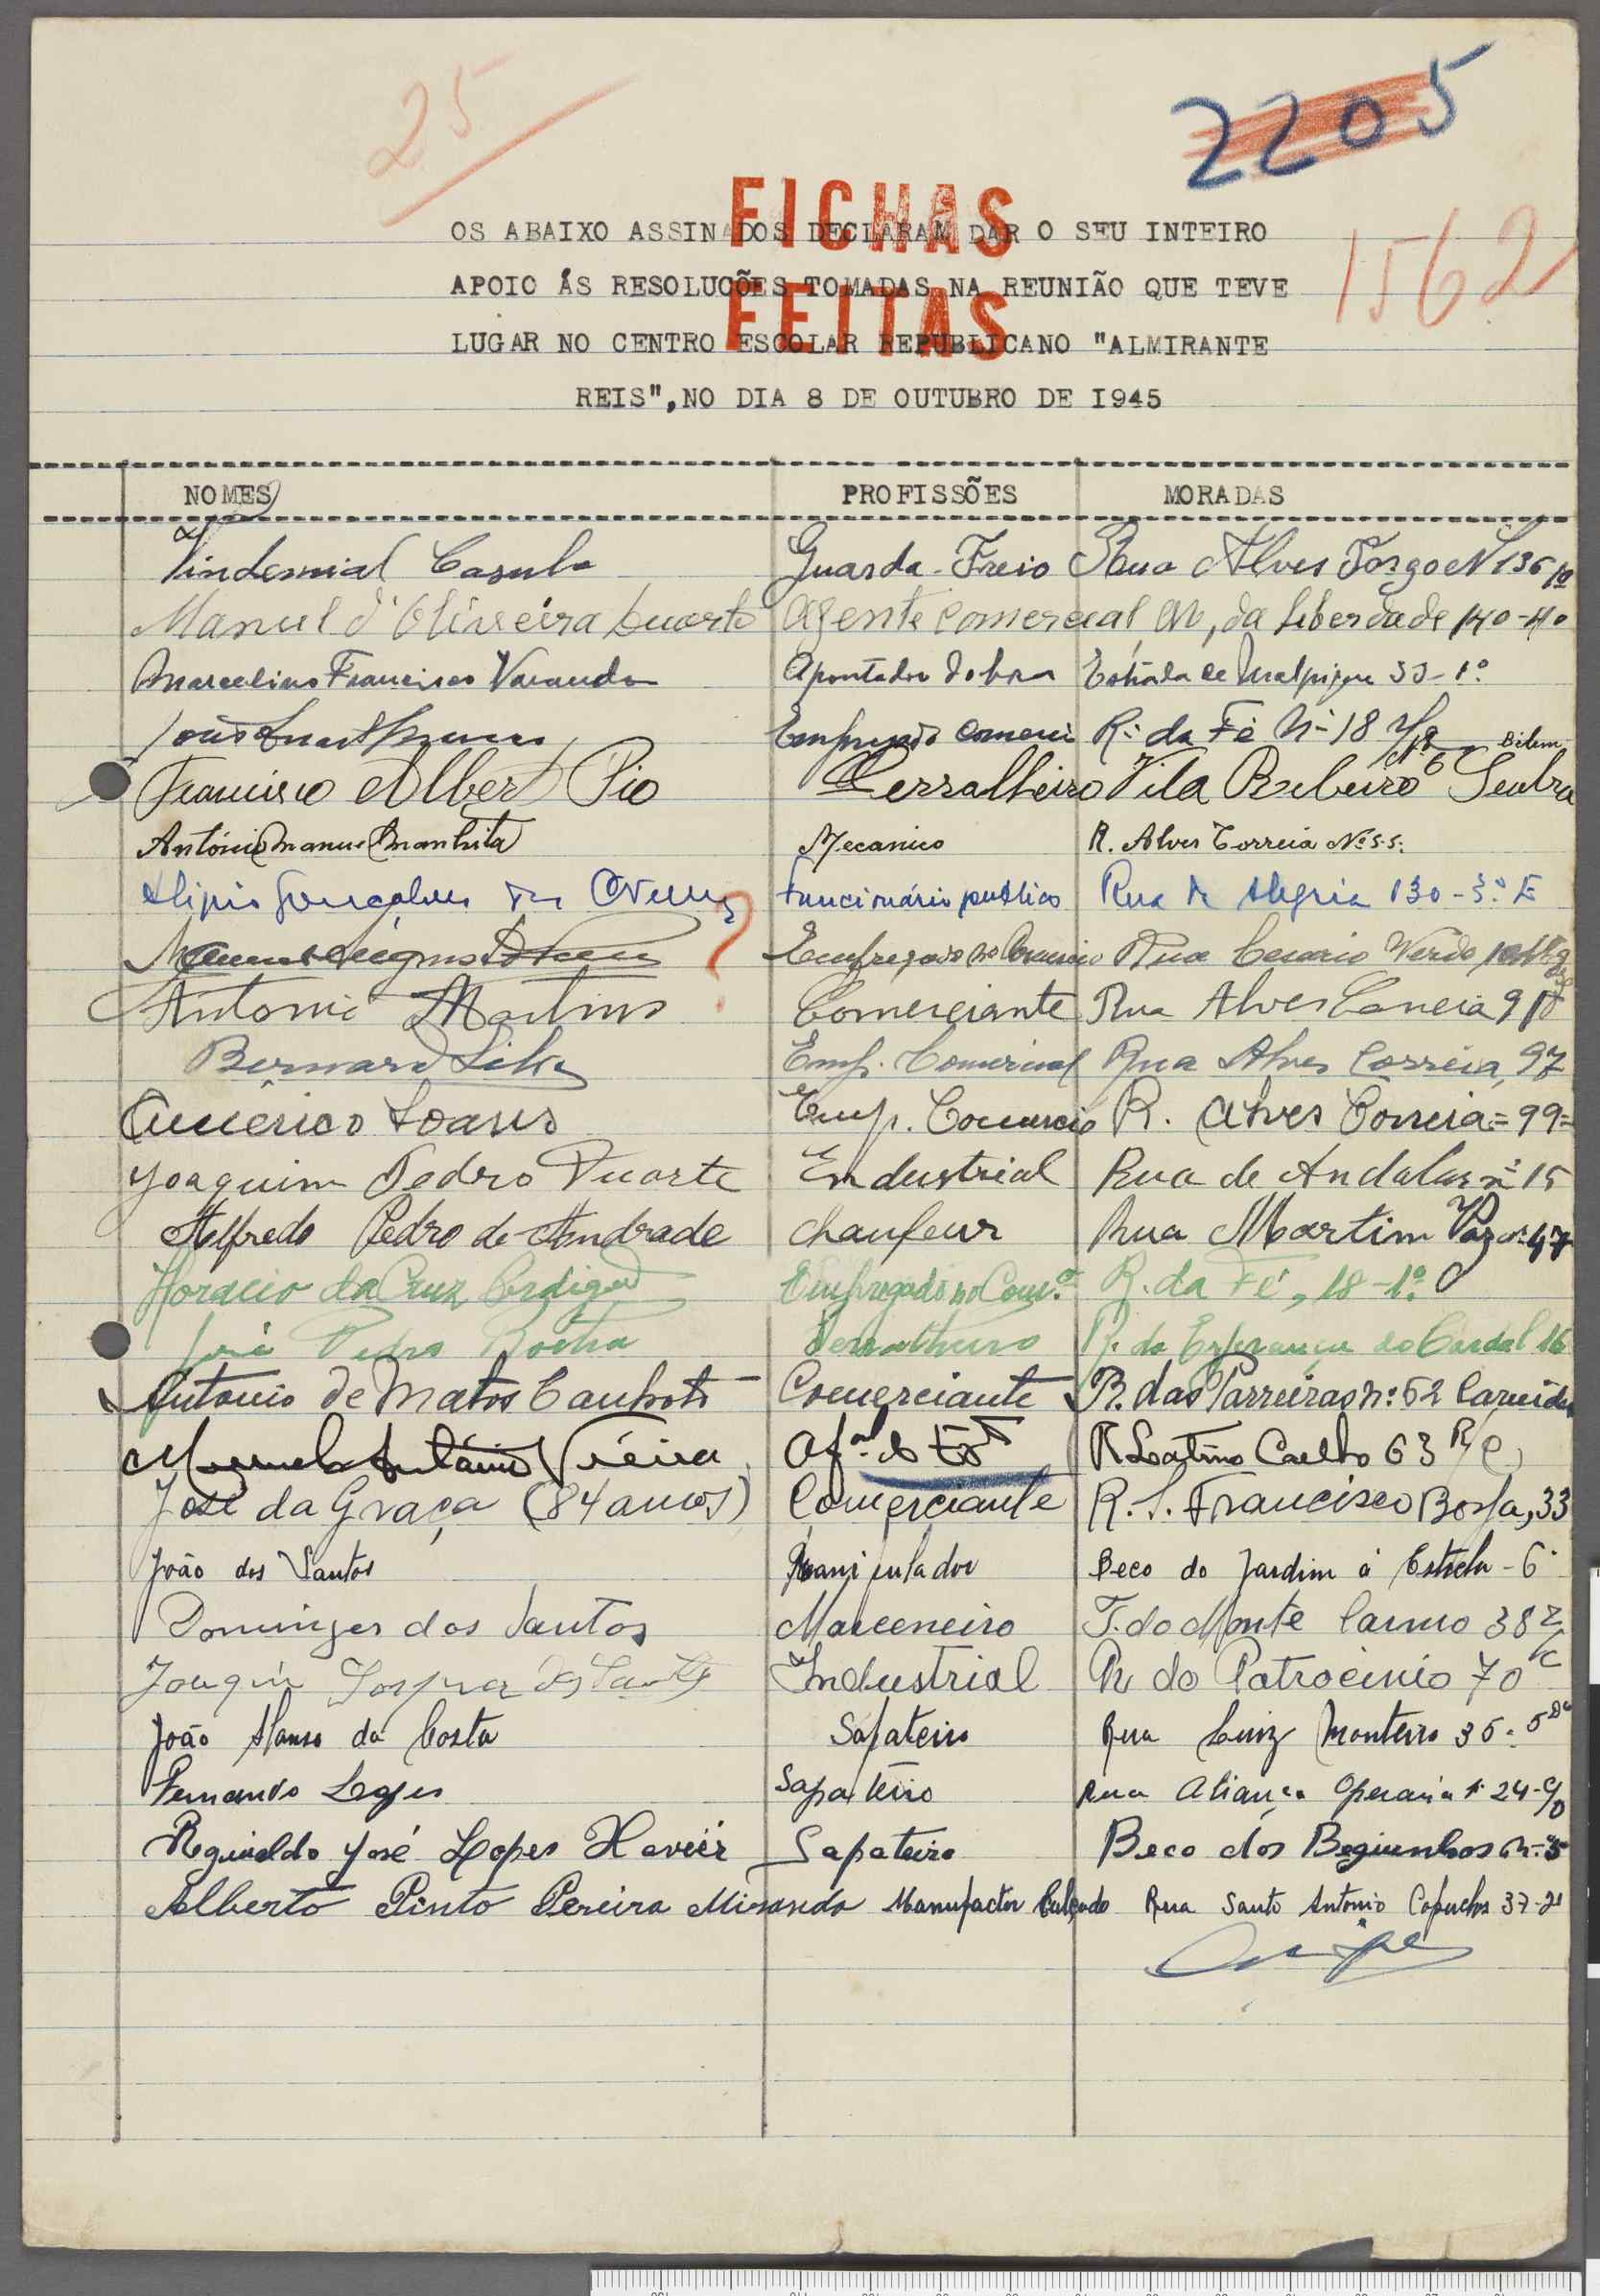 25
2205
FICHAS
OS ABAIXO ASSINADOS DECLARAM DAR O SEU INTEIRO
1562
APOIO ÁS RESOLUCÕES TOMADAS NA REUNIÃO QUE TEVE
FEITAS
LUGAR NO CENTRO ESCOLAR REPUBLICANO "ALMIRANTE
REIS", NO DIA 8 DE OUTUBRO DE I945
NOMES PROFISSÕES MORADAS
Vindemial Casula Guarda-Freio Rua Alves Torgo N 136
Manuel d'Oliveira Duarte Agente comercial Av, da Liberdade 140-4º
Marcelino Francisco Varanda Apontador d obra Estrada de 33-1º
Empregado comerci R: da Fé Nº 18
Francisco Albert Pio Serralheiro Vila Ribeiro 6 Seabra
António Manuel Manhita Mecanico R. Alves Correia Nº 55.
Alipio Gonçalves funcionário publico Rua da Alegria 130-3º E
? Empregado no Comercio Rua Cesario Verde
Antonio Martins Comerciante Rua Alves Correia
Bernard Silva Emp. Comercial Rua Alves Correia, 97
Américo Soares Emp. Comercio R. Alves Correia = 99 =
Joaquim Pedro Duarte Endustrial Rua de Andaluz nº 15
Alfredo Pedro de Andrade chaufeur Rua Martim Vaz nº 47
Horacio da Cruz Empregado no Comº R. da Fé, 18-1º
José Pedro Rocha Serralheiro R. da Esperança do Cardal 16
Antonio de Matos Comerciante R. das Parreiras nº: 52
Manuel António Vieira R Latino Coelho 63 R/C
José da Graça (84 anos) Comerciante R. S. Francisco Borja, 33
João dos Santos Manipulador Beco do Jardim á Estrela - 6
Domingos dos Santos Marceneiro T. do Monte Carmo 38 r/c
Joaquim dos Santos Industrial R do Patrocinio 70
João Afonso da Costa Sapateiro Rua Luiz Monteiro 35-
Fernando Lopes Sapateiro Rua Aliança Operaria nº 24
Reginaldo José Lopes Xavier Sapateiro Beco dos
Alberto Pinto Pereira Miranda Manufactor Calçado Rua Santo Antonio Capuchos 37-2º